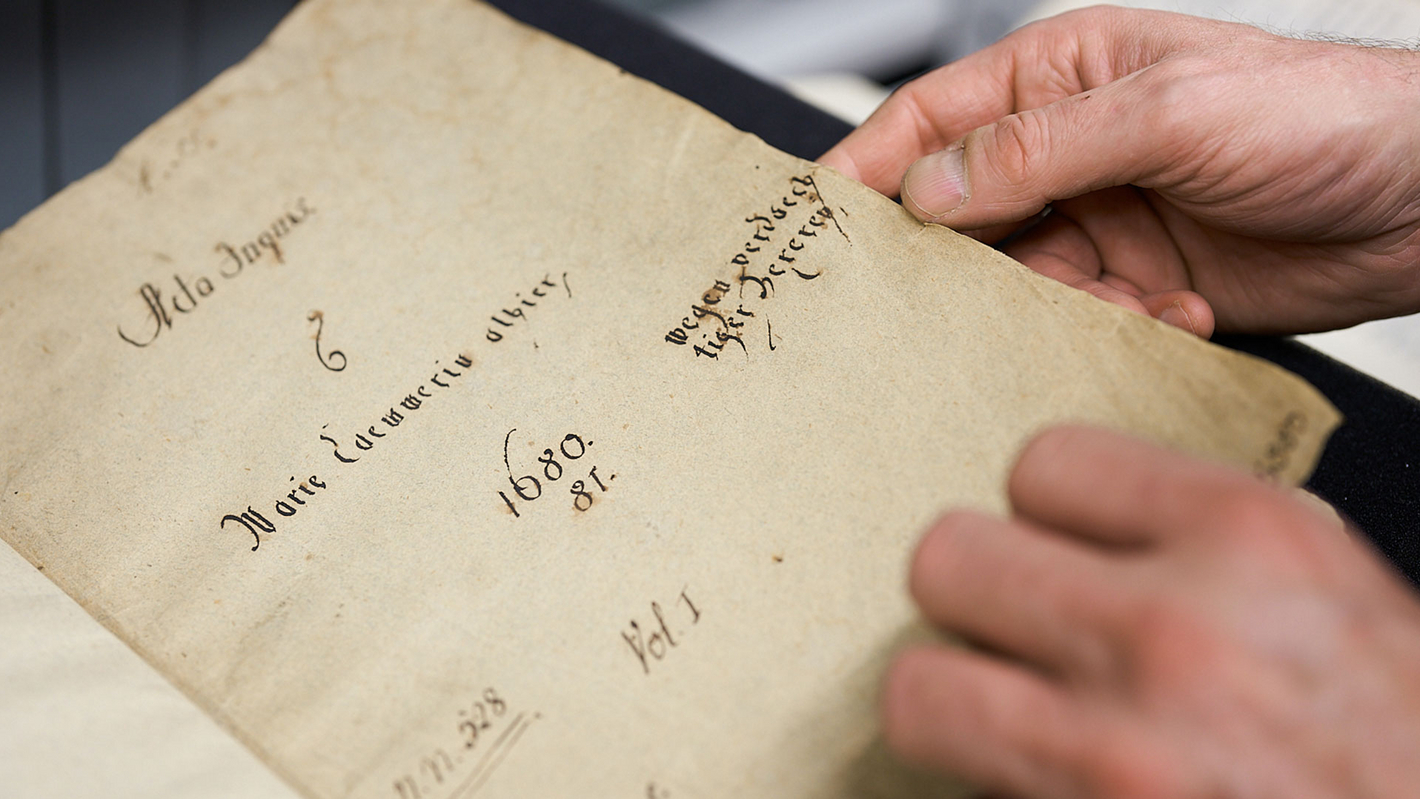 Acta Inquis
Marie Caemmerin alhier,
wegen verdaech
tiger Hexerey
1680.
81.
Vol. I
N.N. 328